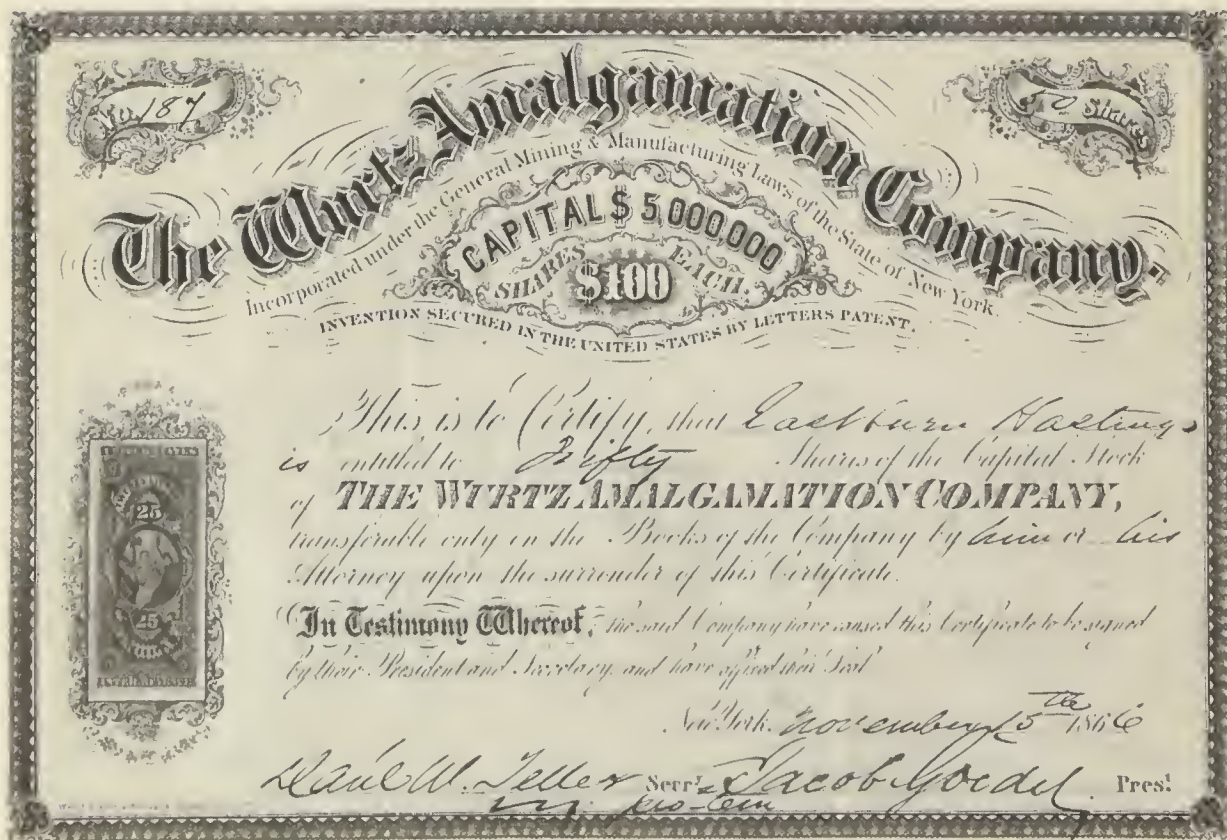 No. 187
50 Shares
The Wurtz Amalgamation Company.
Incorporated under the General Mining & Manufacturing Laws of the State of New York.
CAPITAL $ 5,000,000
SHARES $100 EACH.
INVENTION SECURED IN THE UNITED STATES BY LETTERS PATENT.
This is to Certify, that Eastburn Hastings
is entitled to Fifty Shares of the Capital Stock
of THE WURTZ AMALGAMATION COMPANY,
transferable only on the Books of the Company by him or his
Attorney upon the surrender of this Certificate.
In Testimony Whereof, the said Company have caused this Certificate to be signed
by their President and Secretary, and have affixed their Seal
New York, November 5th 1866
25
25
Secy. Jacob Pres.t
pro-tem